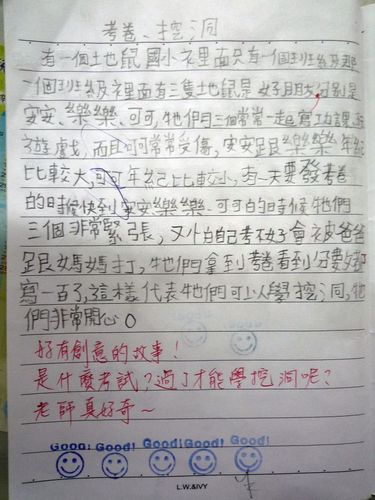 考卷、挖洞
有一個土也鼠國小裡面只有一個班級那
個班級裡面有三隻土也鼠是好朋友分別是
安安、樂樂、可可,牠們三個常常一起寫功課
遊戲,而且可可常常受傷,安安跟樂樂年紀
比較大,可可年紀比較小,有一天要發考卷
的時候快到安安樂樂、可可的時候牠們
三個非常緊張,又怕自己考不好會被爸爸
跟媽媽打,牠們拿到考卷看到分數
寫一百了,這樣代表牠們可以學挖洞,牠
們非常開心。
好有創意的故事!
是什麼考試?過了才能學挖洞呢?
老師真好奇~
Good! Good! Good! Good! Good!
L.W.&IVY